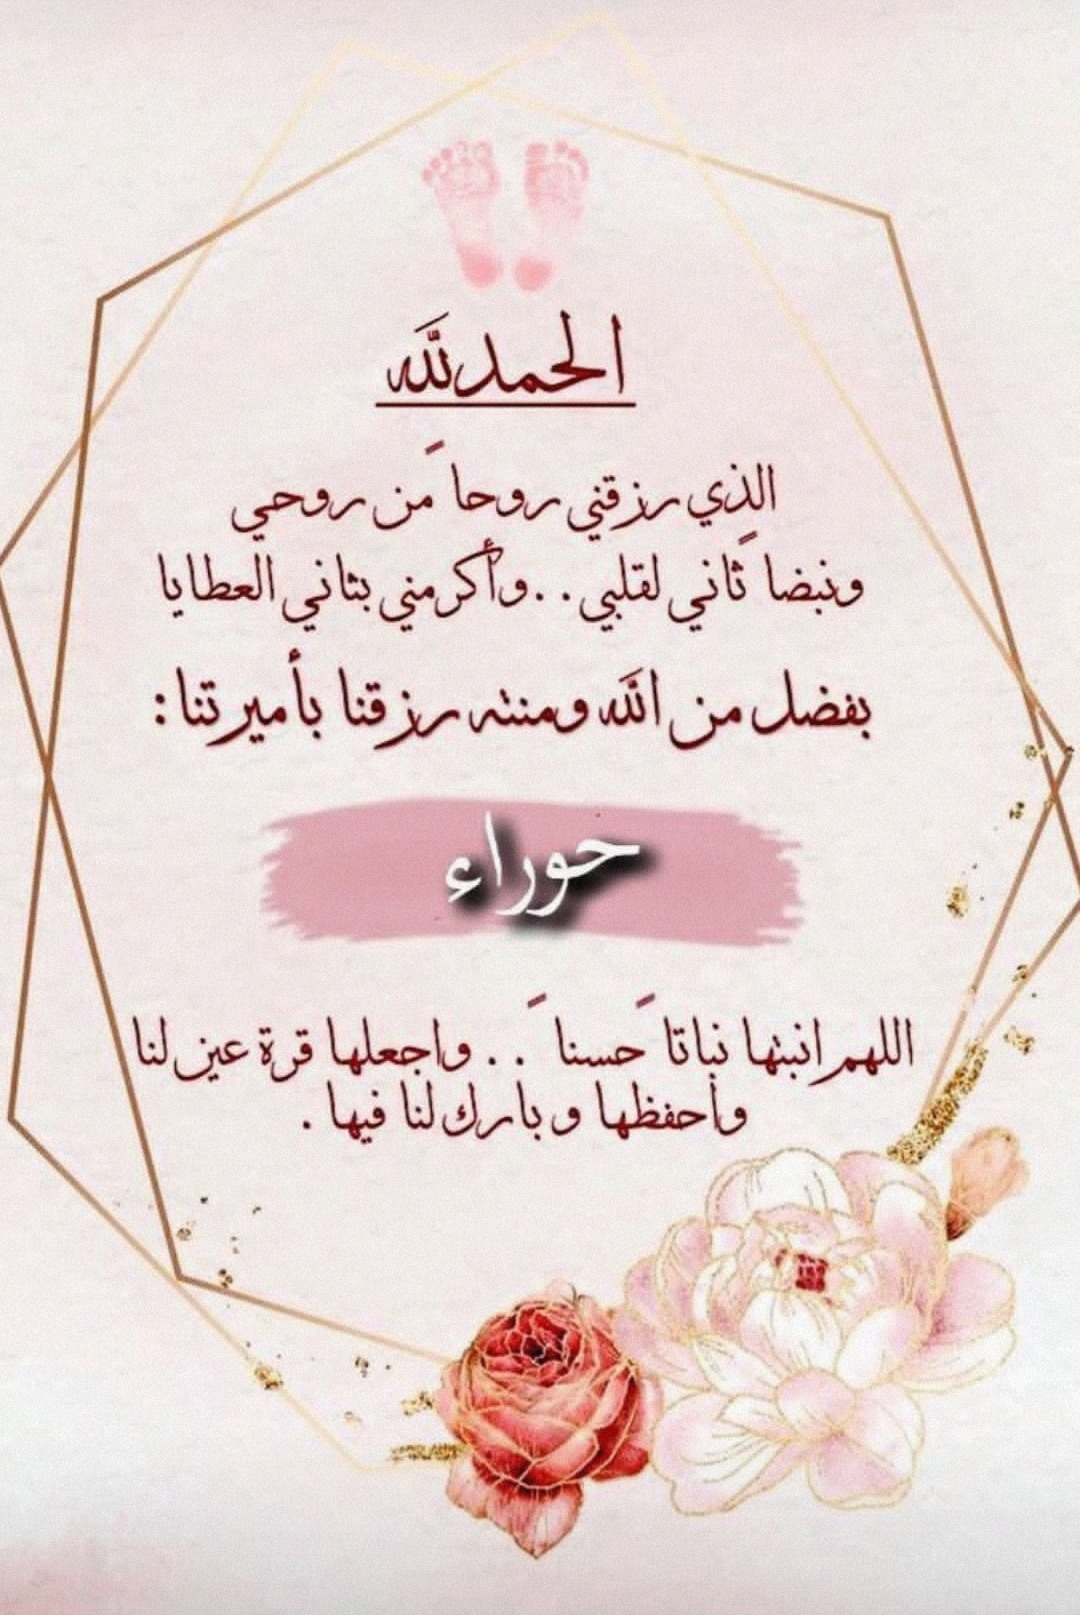 الحمدلله
الذي رزقني روحاً من روحي
ونبضاً ثاني لقلبي . . وأكرمني بثاني العطايا
بفضل من الله ومنته رزقنا بأميرتنا :
حوراء
اللهم انبتها نباتاً حسناً . . واجعلها قرة عين لنا
وأحفظها وبارك لنا فيها .